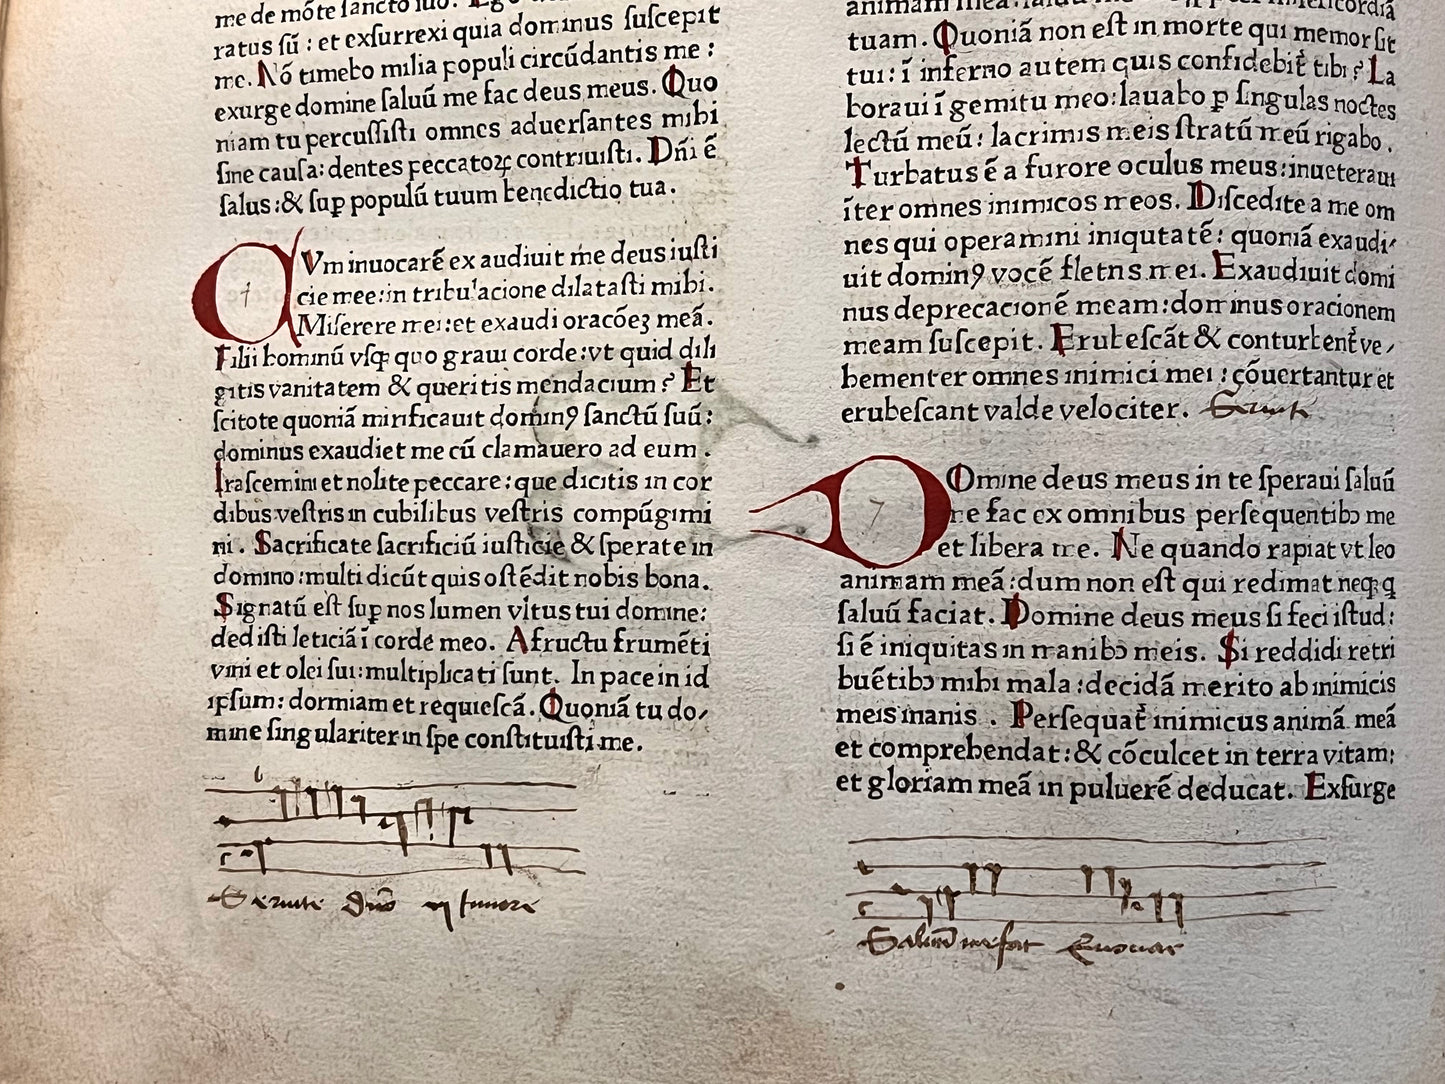 me de mõte sancto suo. Ego
ratus sũ : et exsurrexi quia dominus suscepit
me. Nõ timebo milia populi circũdantis me :
exurge domine saluũ me fac deus meus. Quo
niam tu percussisti omnes aduersantes mihi
sine causa: dentes peccatoꝝ contriuisti. Dñi ẽ
salus :& suꝑ populũ tuum benedictio tua.
CVm inuocarẽ exaudiuit me deus iusti
cie mee: in tribulacione dilatasti mihi.
Miserere mei: et exaudi oracõeȝ meã.
Filii hominũ vsqꝫ quo graui corde: vt quid dili
gitis vanitatem & queritis mendacium ? Et
scitote quoniã mirificauit dominꝰ sanctũ suũ:
dominus exaudiet me cũ clamauero ad eum .
Irascemini et nolite peccare : que dicitis in cor
dibus vestris in cubilibus vestris compũgimi
ni . Sacrificate sacrificiũ iusticie & sperate in
domino: multi dicũt quis ostẽdit nobis bona.
Signatũ est suꝑ nos lumen vltus tui domine:
dedisti leticiã ĩ corde meo. A fructu frumẽti
vini et olei sui: multiplicati sunt. In pace in id
ipsum: dormiam et requiescã. Quoniã tu do/
mine singulariter in spe constituisti me.
animam mea
tuam. Quoniã non est in morte qui memor sit
tui: ĩ inferno autem quis confidebit̃ tibi ? La
boraui ĩ gemitu meo: lauabo ꝑ singulas noctes
lectũ meũ: lacrimis meis stratũ meũ rigabo .
Turbatus ẽ a furore oculus meus: inueteraui
ĩter omnes inimicos meos. Discedite a me om
nes qui operamini iniqutatẽ: quoniã exaudi/
uit dominꝰ vocẽ fletns mei. Exaudiuit domi
nus deprecacionẽ meam: dominus oracionem
meam suscepit. Erubescãt & conturbent̃ ve/
hementer omnes inimici mei : cõuertantur et
erubescant valde velociter.
DOmine deus meus in te speraui saluũ
me fac ex omnibus persequentibꝫ me
et libera me. Ne quando rapiat vt leo
animam meã: dum non est qui redimat neqꝫ q
saluũ faciat. Domine deus meus si feci istud:
si ẽ iniquitas in manibꝫ meis. Si reddidi retri
buẽtibꝫ mihi mala : decidã merito ab inimicis
meis inanis . Persequat̃ inimicus animã meã
et comprehendat: & cõculcet in terra vitam:
et gloriam meã in puluerẽ deducat. Exsurge